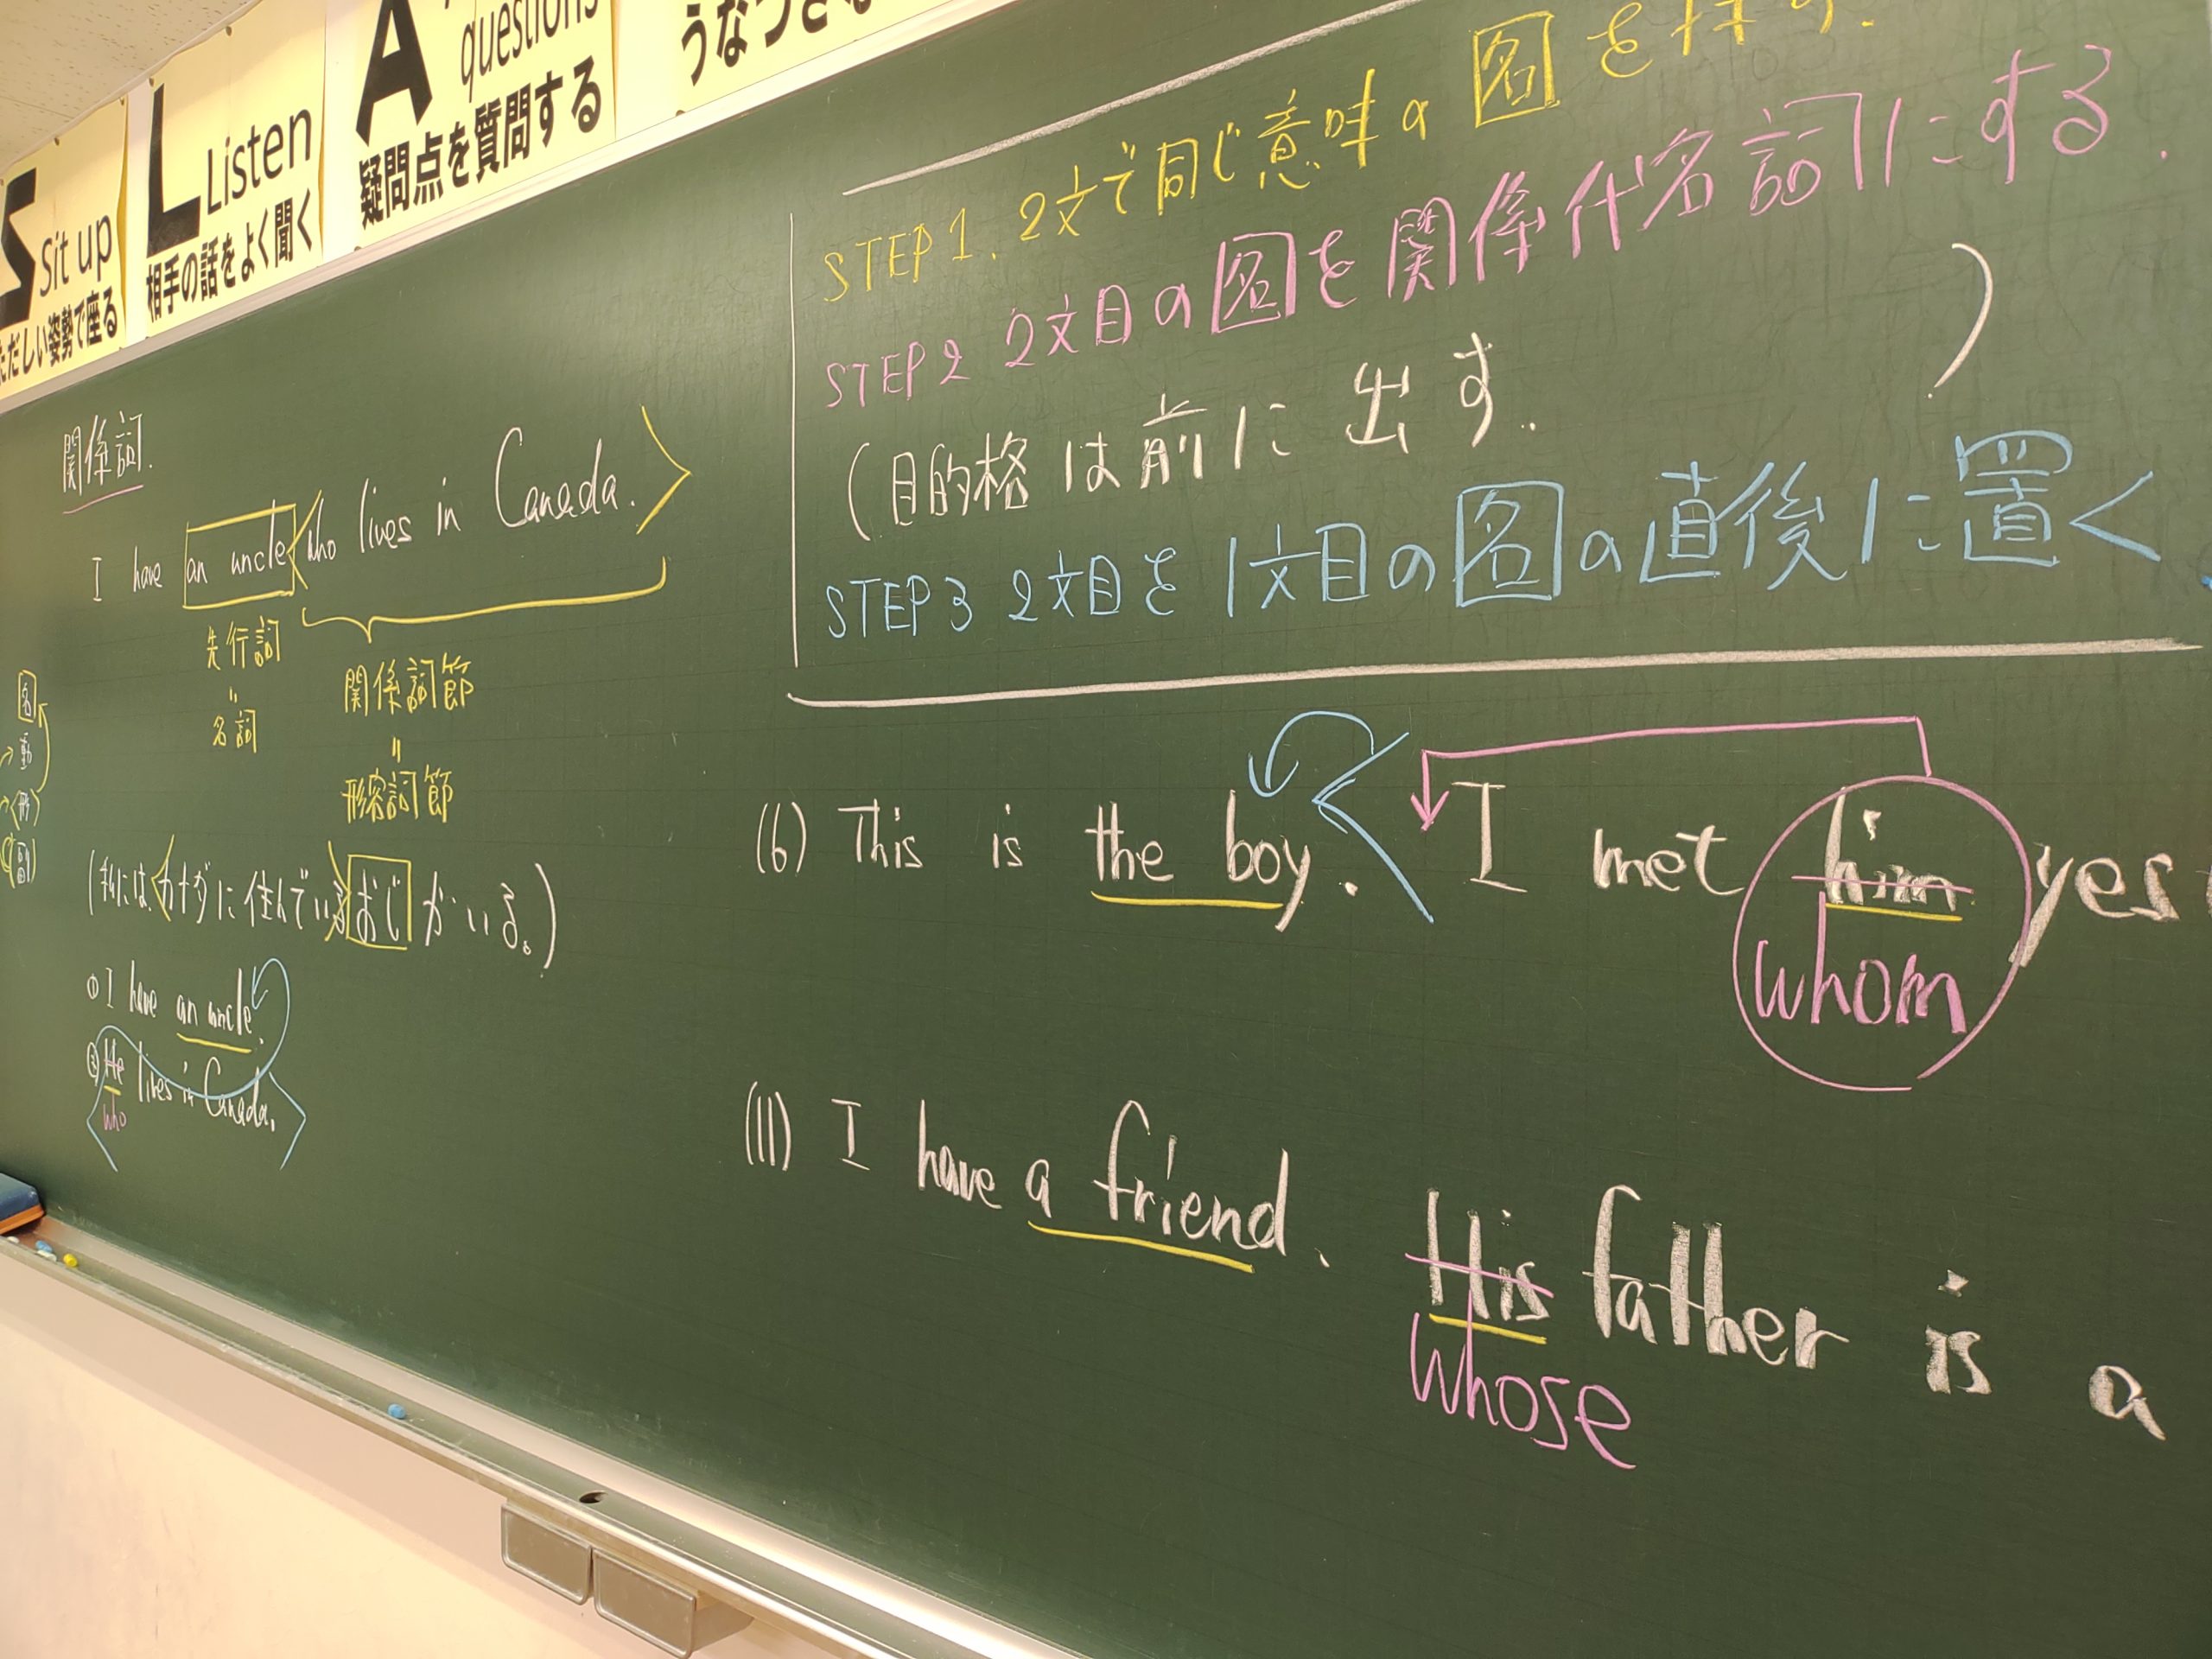 S Sit up
ただしい姿勢で座る
L Listen
相手の話をよく聞く
A questions
疑問点を質問する
うなづき
関係詞.
I have an uncle who lives in Canada.
先行詞
=
名詞
関係詞節
=
形容詞節
名
動
形
副
(私には カナダに住んでいる おじ がいる。)
① I have an uncle.
② He lives in Canada.
who
STEP 1. 2文で同じ意味の 名 を探す.
STEP 2 2文目の 名 を関係代名詞にする.
(目的格は前に出す. )
STEP 3 2文目を1文目の 名 の直後に置く
(6) This is the boy. I met him yes
whom
(11) I have a friend. His father is a
whose